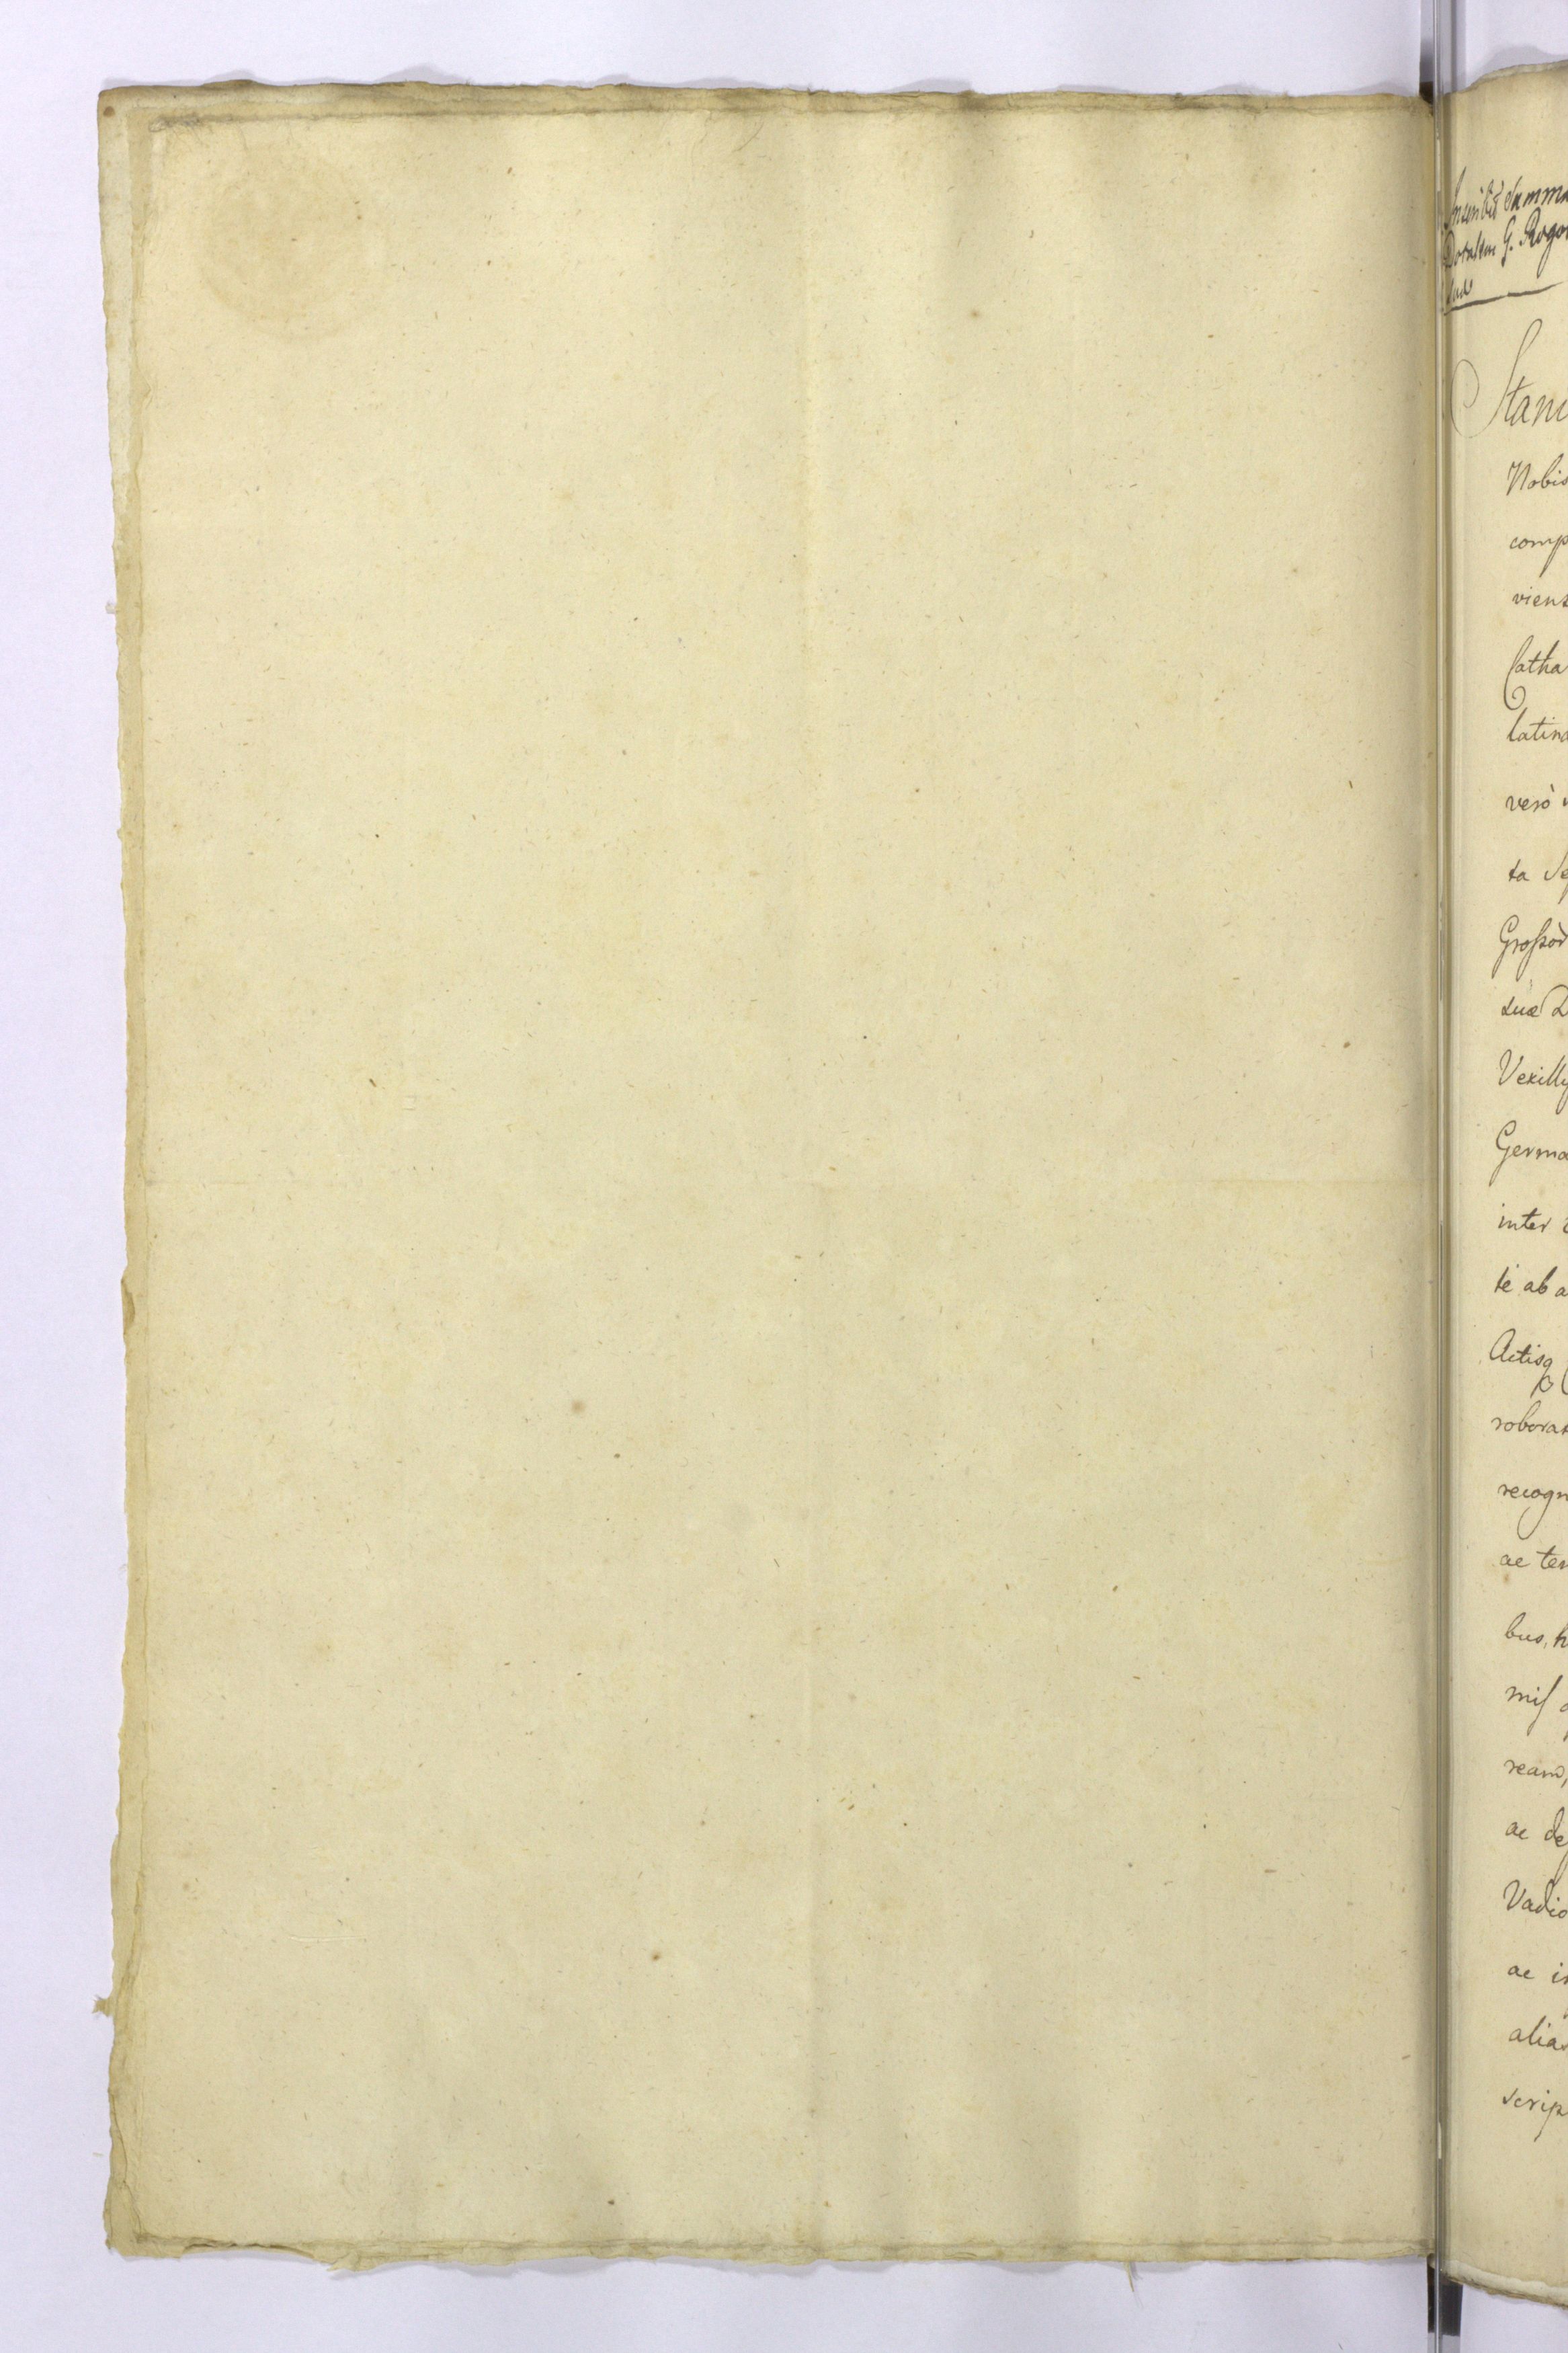 Summa
G. Rogo
Stani
Nobis
comp
viens
Catha
latina
verò
ta
Grossor
suæ
Vexilly
Germa
inter
te ab a
Actisq
roborat
recogn
ac ter
bus, h
mis
ream,
ac de
Vadio
ac i
alias
scrip